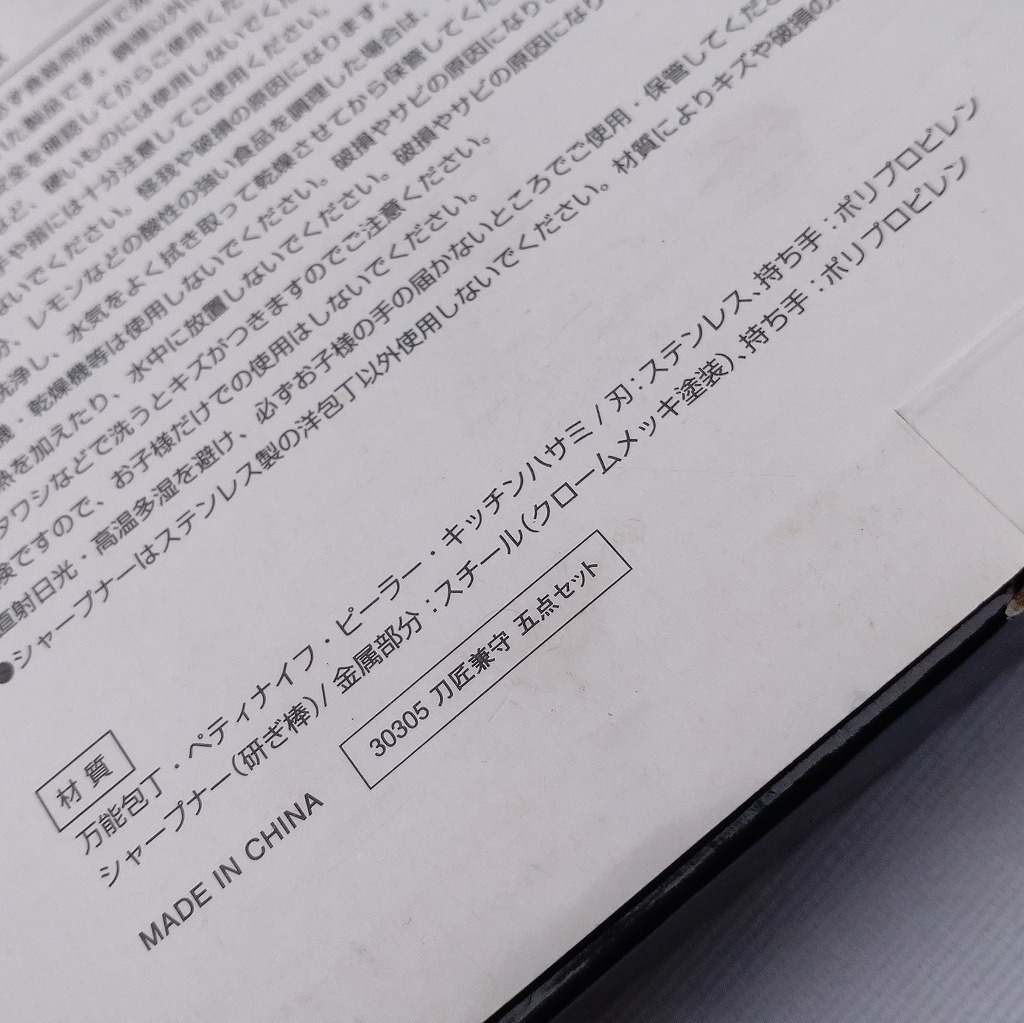 必ず食器用洗剤で
た製品です。調理以外に
安全を確認してからご使用くだ
など、硬いものには使用しないでく
手や指には十分注意してご使用ください。
ないでください。怪我や破損の原因になります。
分、レモンなどの酸性の強い食品を調理した場合は、
洗浄し、水気をよく拭き取って乾燥させてから保管して
機・乾燥機等は使用しないでください。破損やサビの原因になり
熱を加えたり、水中に放置しないでください。破損やサビの原因になり
タワシなどで洗うとキズがつきますのでご注意ください。
険ですので、お子様だけでの使用はしないでください。
直射日光・高温多湿を避け、必ずお子様の手の届かないところでご使用・保管してくださ
●シャープナーはステンレス製の洋包丁以外使用しないでください。材質によりキズや破損の
材質
万能包丁・ペティナイフ・ピーラー・キッチンハサミ / 刃:ステンレス、持ち手:ポリプロピレン
シャープナー(研ぎ棒)/ 金属部分:スチール(クロームメッキ塗装)、持ち手:ポリプロピレン
30305 刀匠兼守 五点セット
MADE IN CHINA